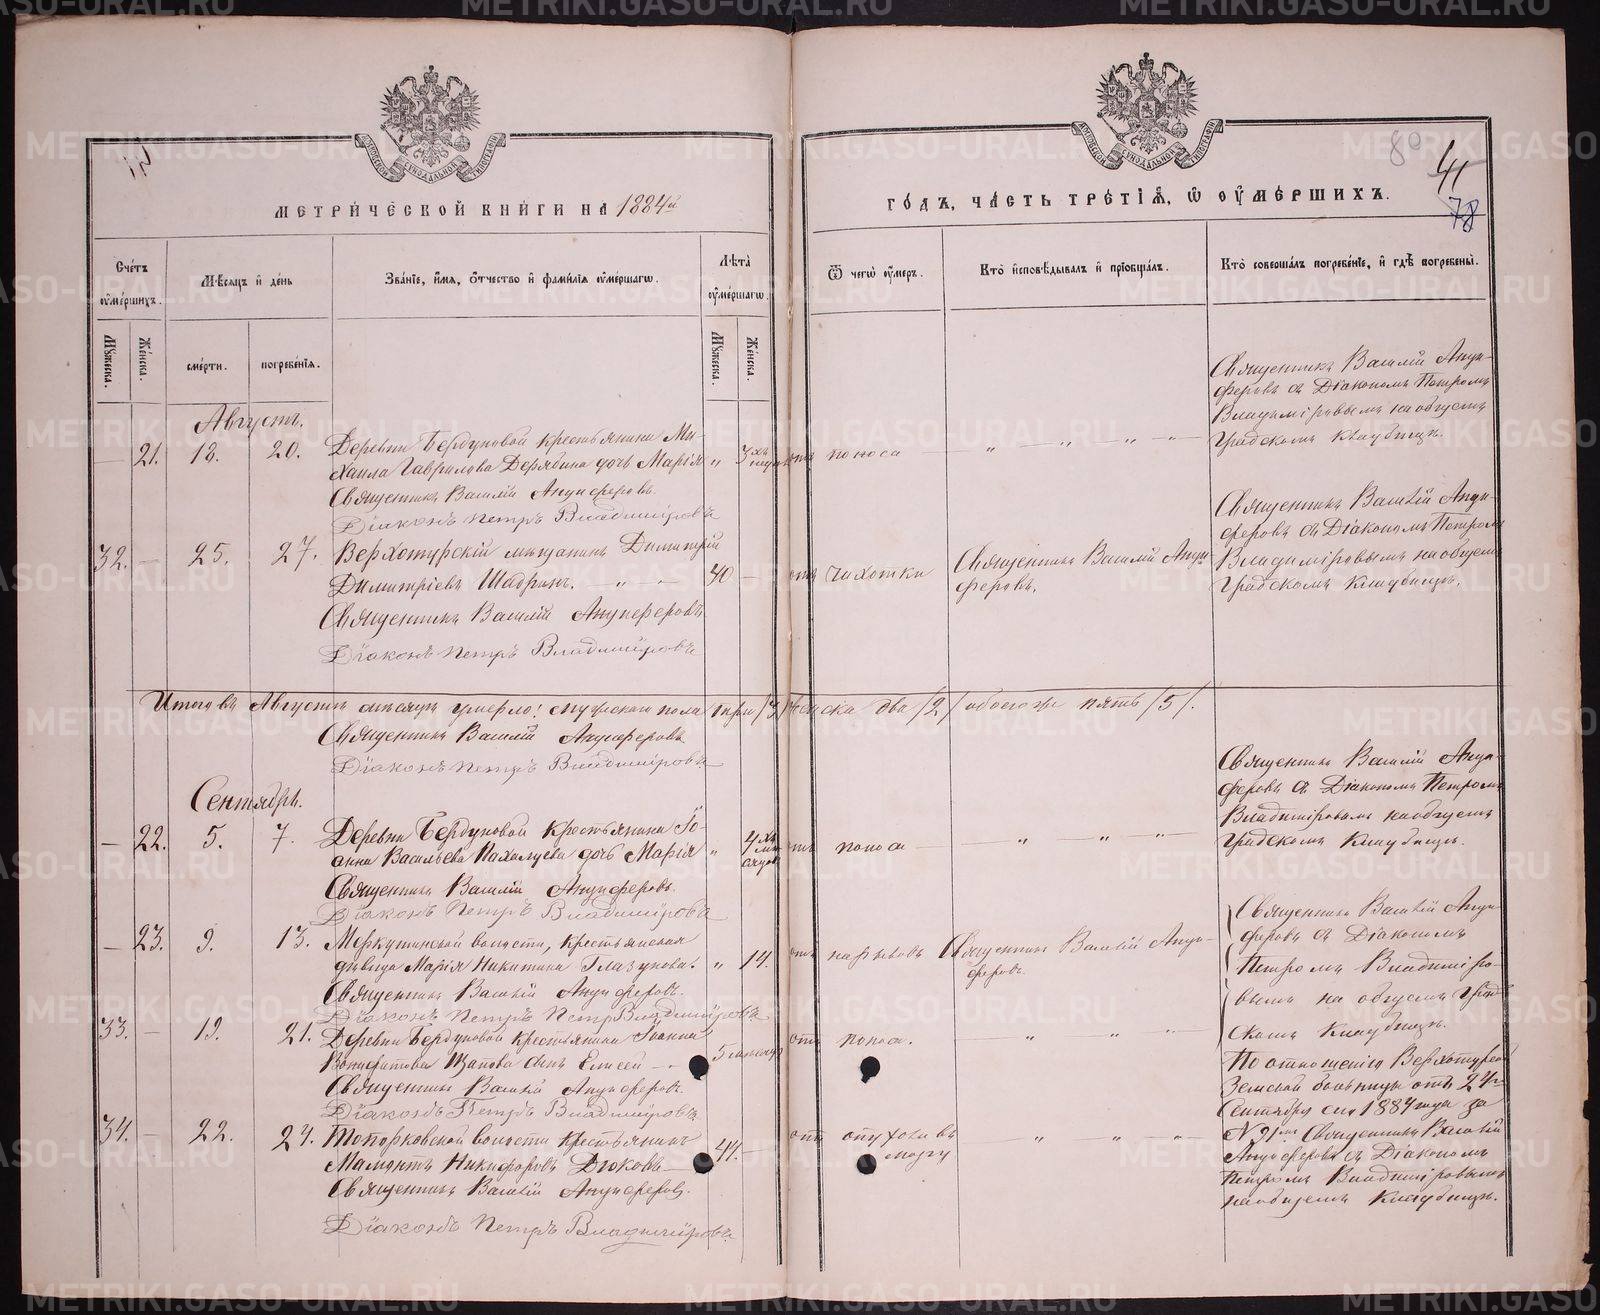 МЕТРИЧЕСКОЙ КНИГИ НА 1884й
ГОДЪ, ЧАСТЬ ТРЕТІЯ, Ѡ ОУМЕРШИХЪ.
80
41
78
Счетъ оумершихъ.
Мѣсяцъ и день
Званіе, имя, отчество и фамилія оумершагѡ.
Лѣта оумершагѡ.
Ѿ чегѡ оумеръ.
Кто исповѣдывалъ и пріобщалъ.
Кто совершалъ погребеніе, и гдѣ погребены.
Мужеска.
Женска.
смерти.
погребенія.
Мужеска.
Женска.
Августъ.
— 21. 18. 20.
Деревни Бердуновой крестьянина Ми-
хаила Гаврилова Дерябина дочь Марія
Священникъ Василій Анциферовъ.
Діаконъ Петръ Владиміровъ
„ 3хъ
отъ поноса
Священникъ Василій Анци-
феровъ съ Діакономъ Петромъ
Владиміровымъ на общемъ
градскомъ кладбищѣ.
32. — 25. 27.
Верхотурскій мѣщанинъ Димитрій
Димитріевъ Шадринъ.
Священникъ Василій Анциферовъ
Діаконъ Петръ Владиміровъ
40 —
отъ чихотки
Священникъ Василій Анци-
феровъ.
Священникъ Василій Анци-
феровъ съ Діакономъ Петромъ
Владиміровымъ на общемъ
градскомъ кладбищѣ.
Итого въ Августѣ мѣсяцѣ умерло: мужескаго пола три /3/ женска два /2/ обоего же пять /5/.
Священникъ Василій Анциферовъ
Діаконъ Петръ Владиміровъ
Сентябрь.
— 22. 5. 7.
Деревни Бердуновой крестьянина Іо-
анна Васильева Пахалуева дочь Марія
Священникъ Василій Анциферовъ.
Діаконъ Петръ Владиміровъ
„ 4хъ мѣ-
сяцовъ
отъ поноса
Священникъ Василій Анци-
феровъ съ Діакономъ Петромъ
Владиміровымъ на общемъ
градскомъ кладбищѣ.
— 23. 9. 13.
Меркушинской волости, крестьянская
дѣвица Марія Никитина Глазунова.
Священникъ Василій Анциферовъ.
Діаконъ Петръ Владиміровъ
„ 14.
отъ нарывовъ
Священникъ Василій Анци-
феровъ.
Священникъ Василій Анци-
феровъ съ Діакономъ
Петромъ Владиміро-
вымъ на общемъ Град-
скомъ кладбищѣ.
33. — 19. 21.
Деревни Бердуновой крестьянина Іоанна
Вонифатова сынъ Елисей
Священникъ Василій Анциферовъ.
Діаконъ Петръ Владиміровъ
5
отъ поноса.
34. — 22. 27.
Топорковской волости крестьянинъ
Мамонтъ Никифоровъ
Священникъ Василій Анциферовъ.
Діаконъ Петръ Владиміровъ.
44. —
отъ опухоли въ
мозгу
По отношенію Верхотурской
Земской больницы отъ 24го
Сентября сего 1884 года за
№ Священникъ Василій
Анциферовъ съ Діакономъ
Петромъ Владиміровымъ
на общемъ кладбищѣ.